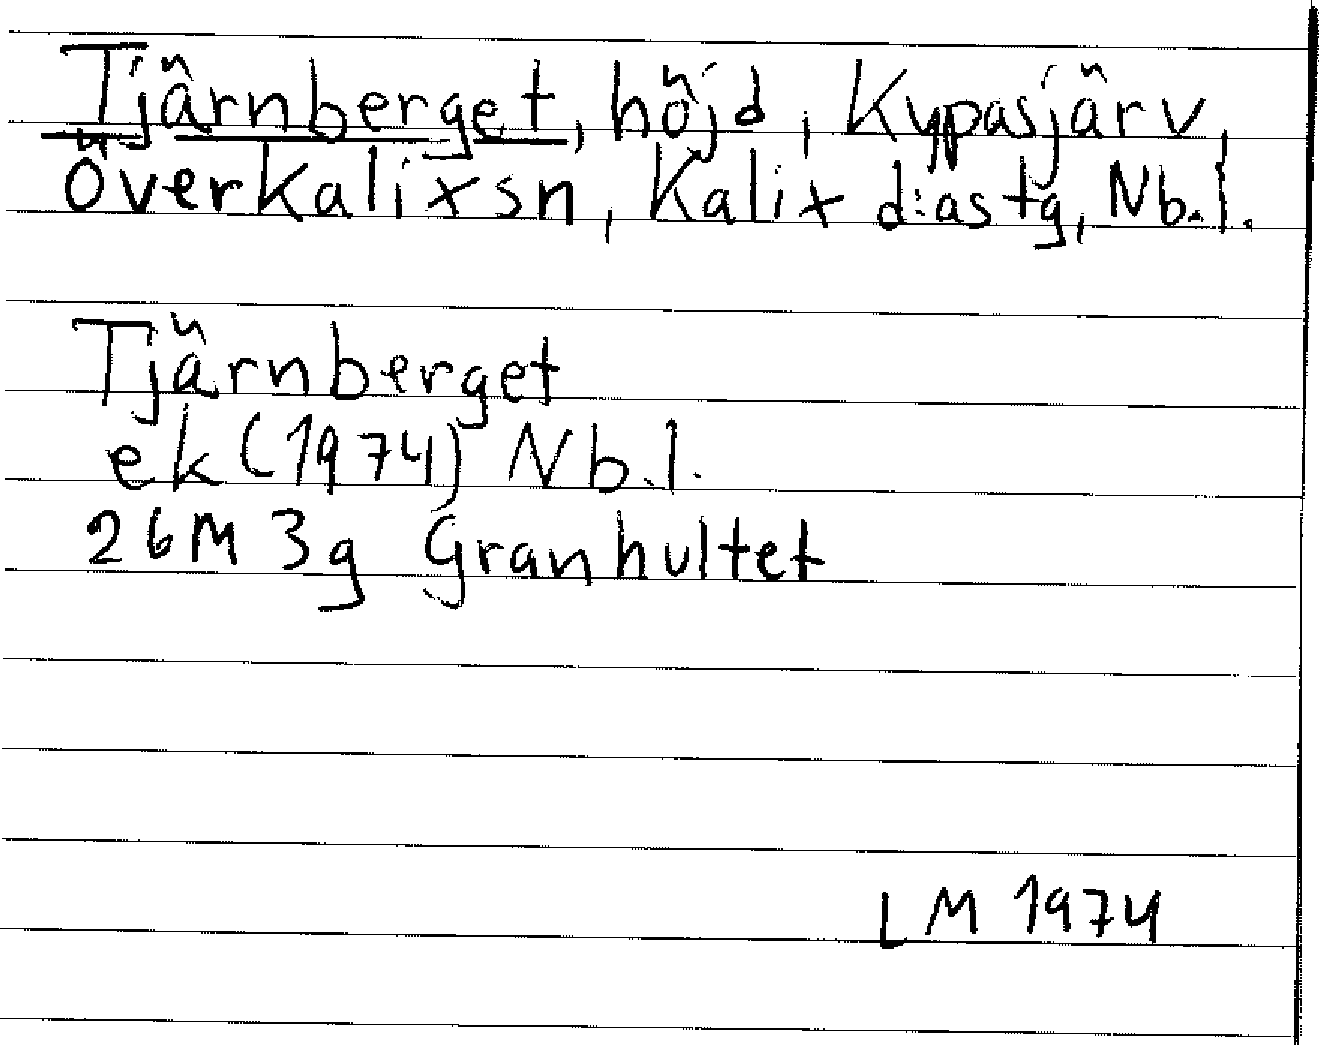 Tjärnberget, höjd, Kypasjärv,
Överkalix sn, Kalix d:astg, Nb.l.
Tjärnberget
ek (1974) Nb.l.
26M 3g Granhultet
LM 1974